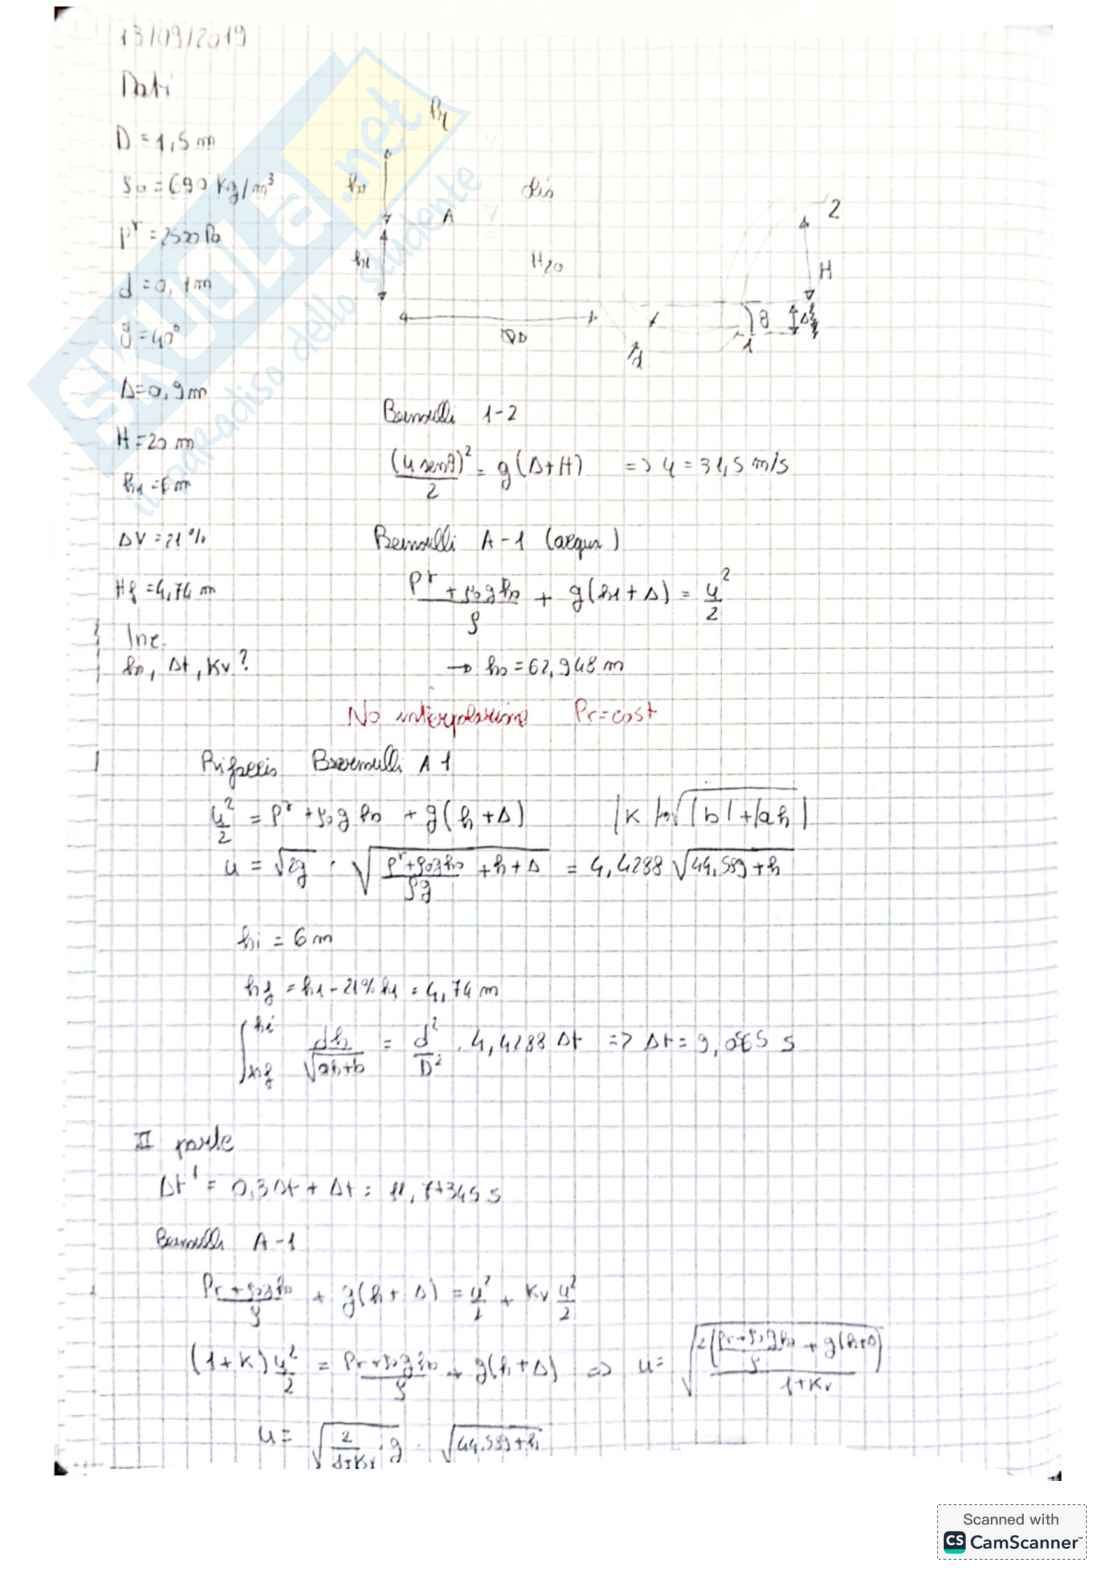 13/09/2019
Dati
D = 1,5 m
ρo = 690 Kg/m³
pʳ = 2500 Pa
d = 0,1 m
θ = 40°
Δ = 0,9 m
H = 20 m
h1 = 6 m
ΔV = 21%
Hf = 4,74 m
Inc.
ho, Δt, Kv?
Pr
ho
A
h1
H2O
D
d
2
H
θ
Δ
1
Bernoulli 1-2
(u senθ)²/2 = g(Δ+H) => u = 31,5 m/s
Bernoulli A-1 (acqua)
(pʳ + ρo g ho)/ρ + g(h1 + Δ) = u²/2
→ ho = 62,948 m
No interpolazione Pr = cost
Rifaccio Bernoulli A1
u²/2 = pʳ + ρo g ho + g(h + Δ) |K|√|b|+|ah|
u = √2g · √((pʳ+ρo g ho)/ρg + h + Δ) = 4,4288 √(44,589 + h)
hi = 6 m
hf = h1 - 21% h1 = 4,74 m
∫ hi hf dh/√(ah+b) = d²/D² · 4,4288 Δt => Δt = 9,065 s
II parte
Δt' = 0,3Δt + Δt = 11,7345 s
Bernoulli A-1
(Pr + ρo g ho)/ρ + g(h + Δ) = u²/2 + Kv u²/2
(1+K) u²/2 = (Pr + ρo g ho)/ρ + g(h + Δ) => u = √(2((Pr + ρo g ho)/ρ + g(h+Δ))/(1+Kv))
u = √(2/(1+Kv) · g) · √(44,589 + h)
SKUOLA.net
il paradiso dello studente
Scanned with
CS CamScanner